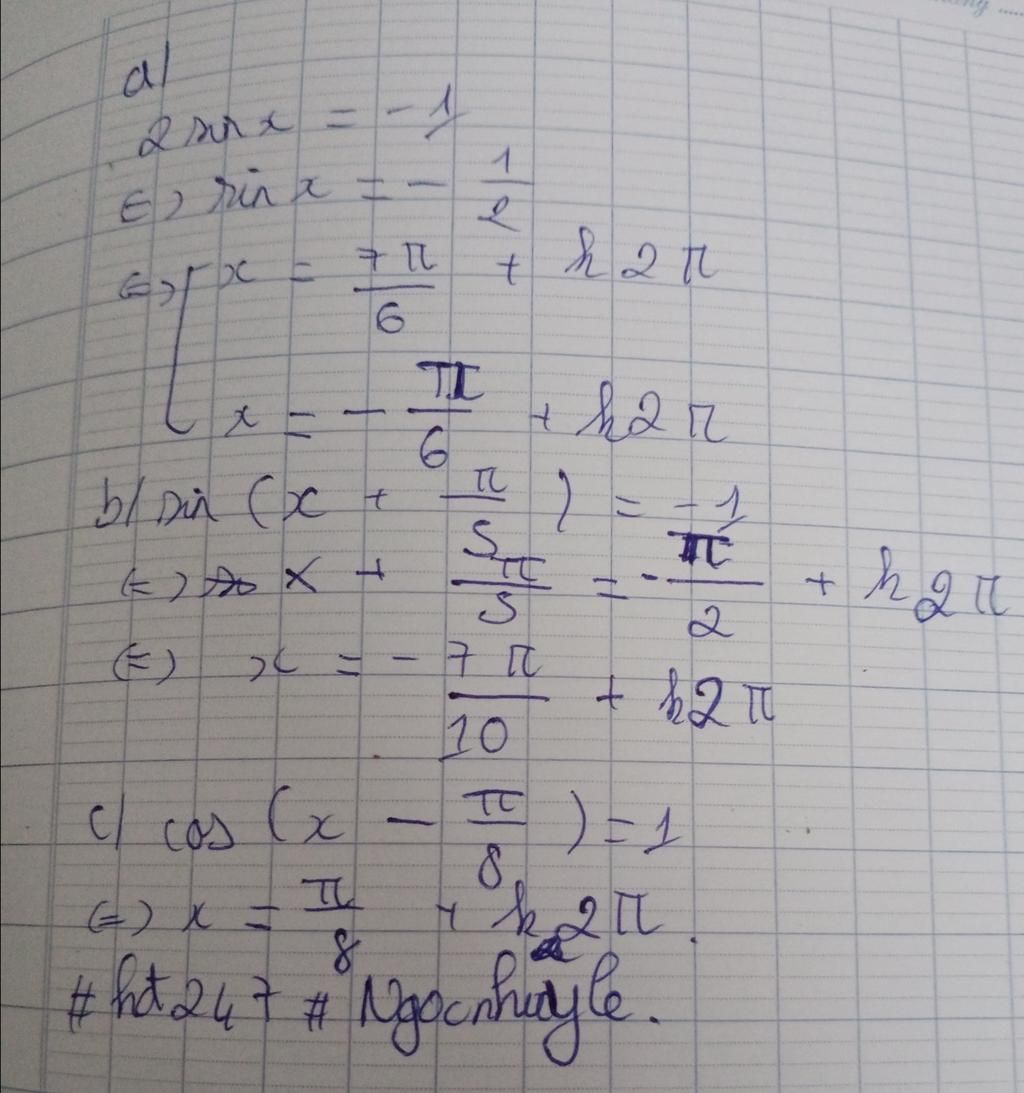 a/
2 sin x = - 1
<=> sin x = - 1/2
<=> [ x = 7π/6 + k2π
x = - π/6 + k2π
b/ sin (x + π/5) = -1
<=> x + π/5 = - π/2 + k2π
<=> x = - 7π/10 + k2π
c/ cos (x - π/8) = 1
<=> x = π/8 + k2π.
#hđ247 #Ngocnhuyle.